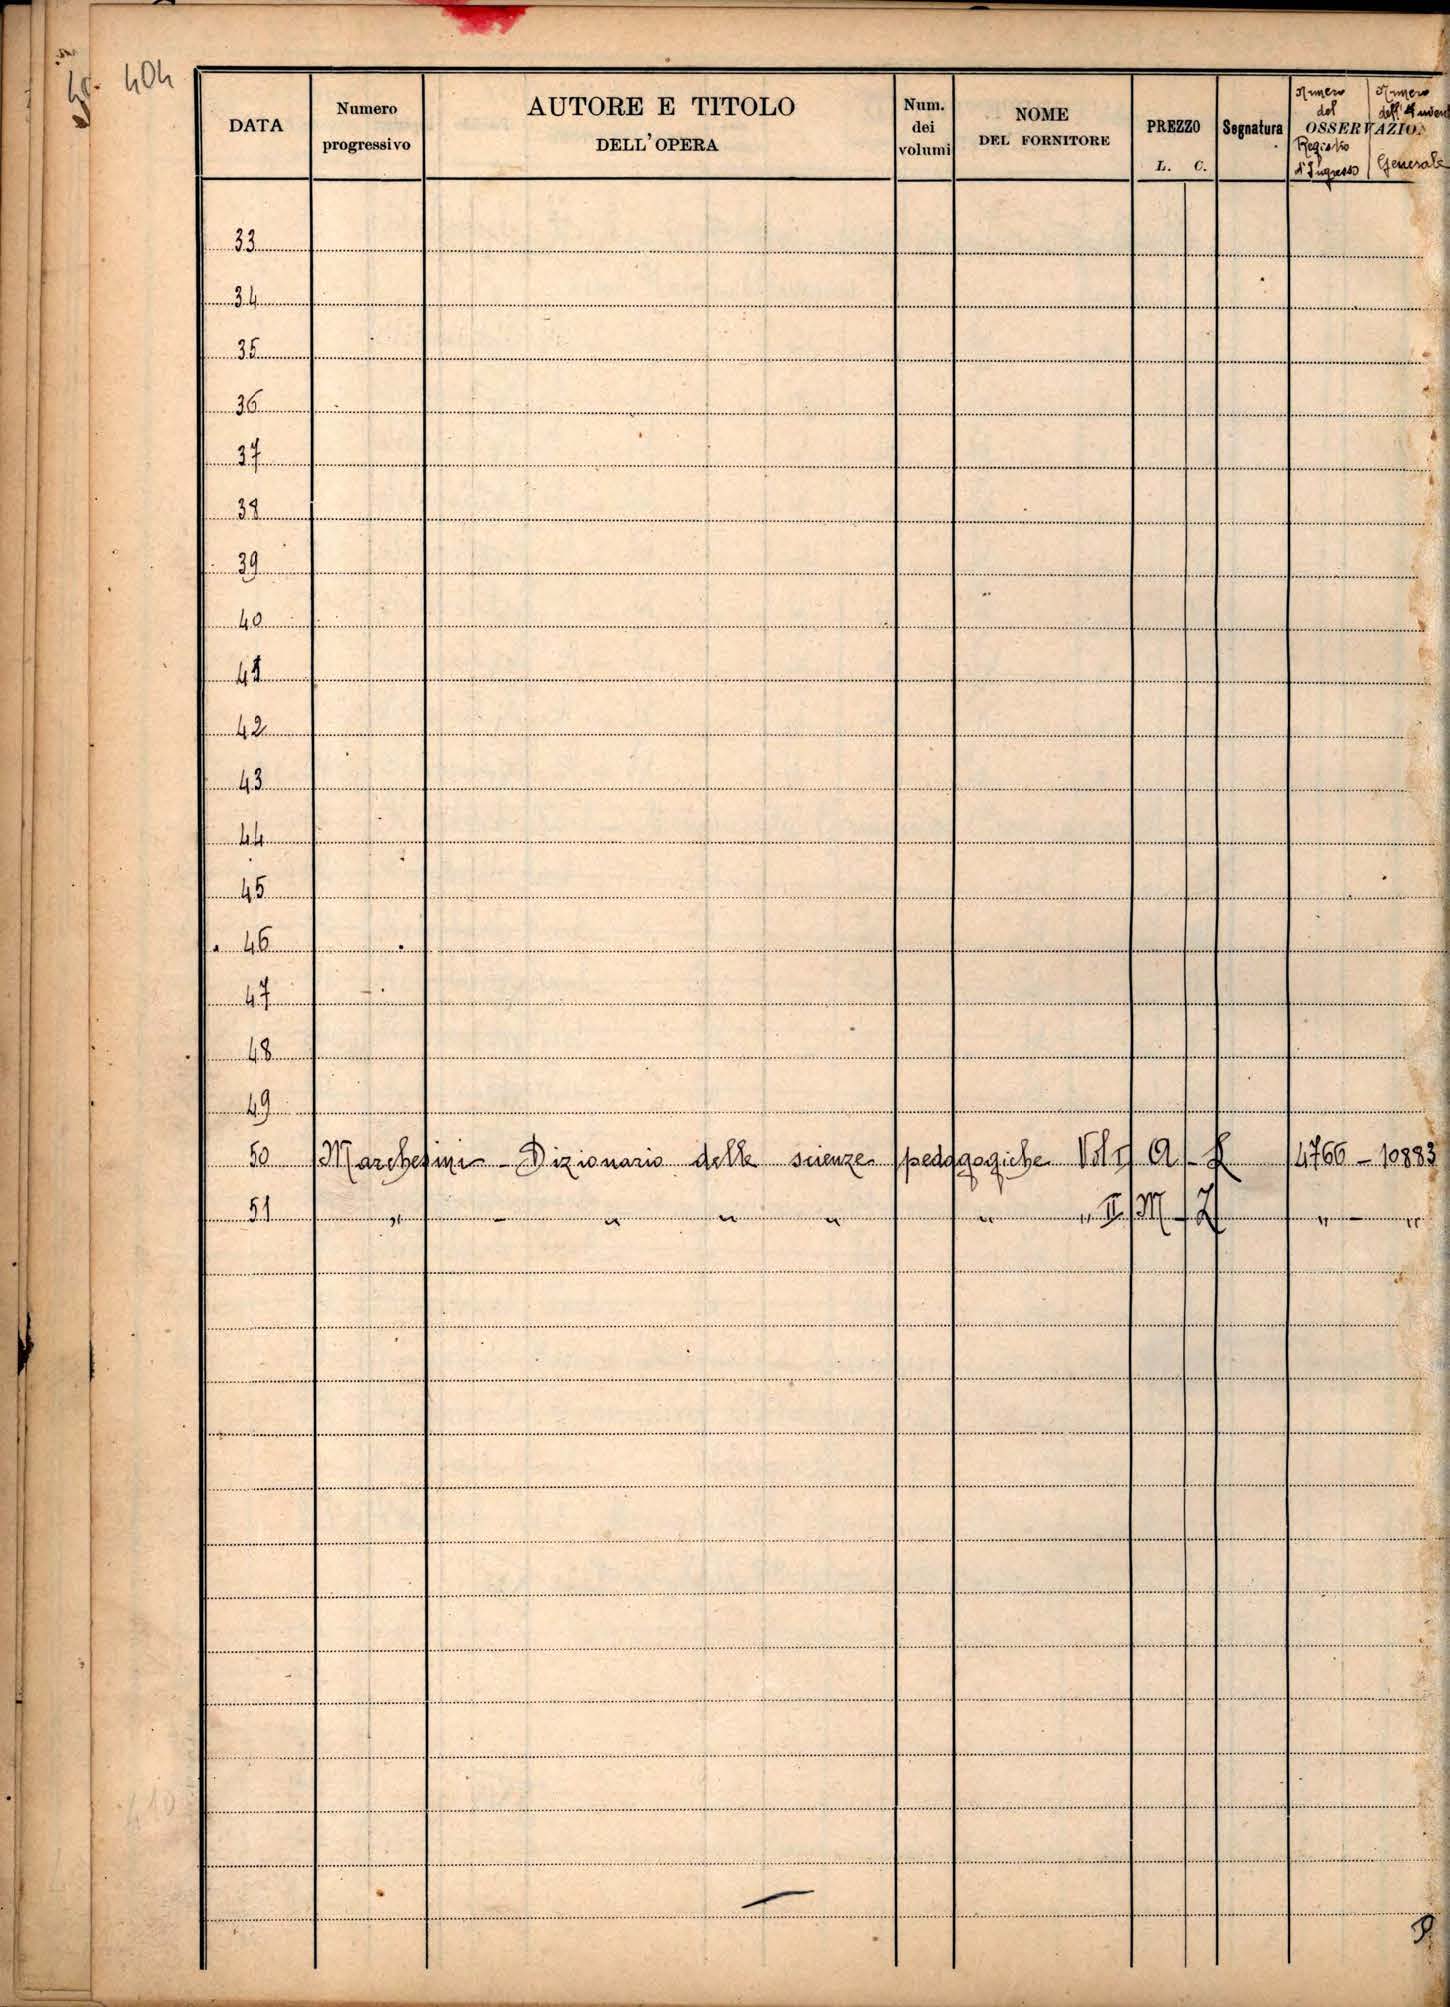 404
DATA Numero progressivo AUTORE E TITOLO DELL'OPERA Num. dei volumi NOME DEL FORNITORE PREZZO L. C. Segnatura OSSERVAZIO
Numero del Registro d'Ingresso Numero dell' Generale
33
34
35
36
37
38
39
40
41
42
43
44
45
46
47
48
49
50 Marchesini - Dizionario delle scienze pedagogiche Vol I A - L 4766 - 10883
51 " - " " " " " II M - Z " - "
410